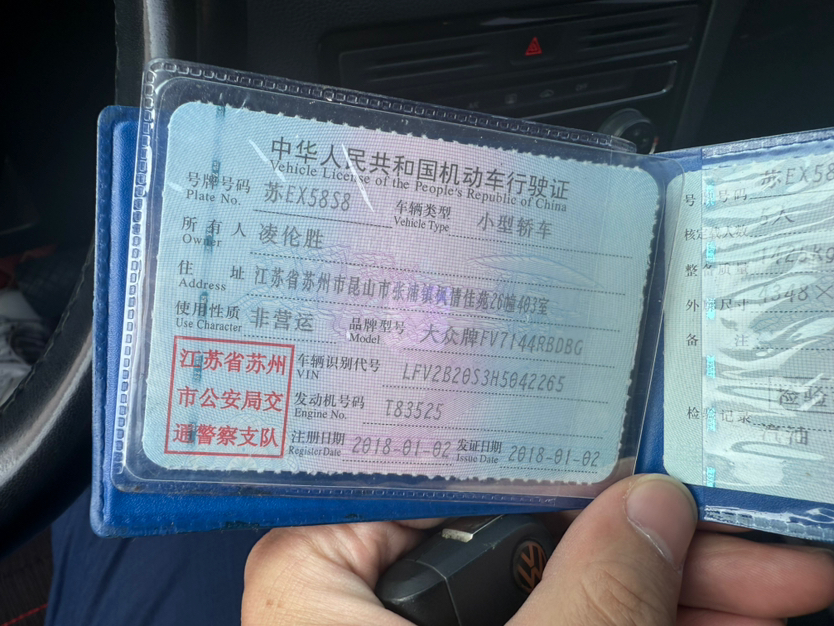 中华人民共和国机动车行驶证
Vehicle License of the People's Republic of China
号牌号码 苏EX58S8 车辆类型 小型轿车
Plate No. Vehicle Type
所有人 凌伦胜
Owner
住址 江苏省苏州市昆山市张浦镇枫情佳苑26幢403室
Address
使用性质 非营运 品牌型号 大众牌FV7144RBDBG
Use Character Model
江苏省苏州
市公安局交
通警察支队
车辆识别代号 LFV2B20S3H5042265
VIN
发动机号码 T83525
Engine No.
注册日期 2018-01-02 发证日期 2018-01-02
Register Date Issue Date
号牌号码 苏EX58
核定载人数 5人
整备质量
外廓尺寸
备注
检验
检验记录
汽油